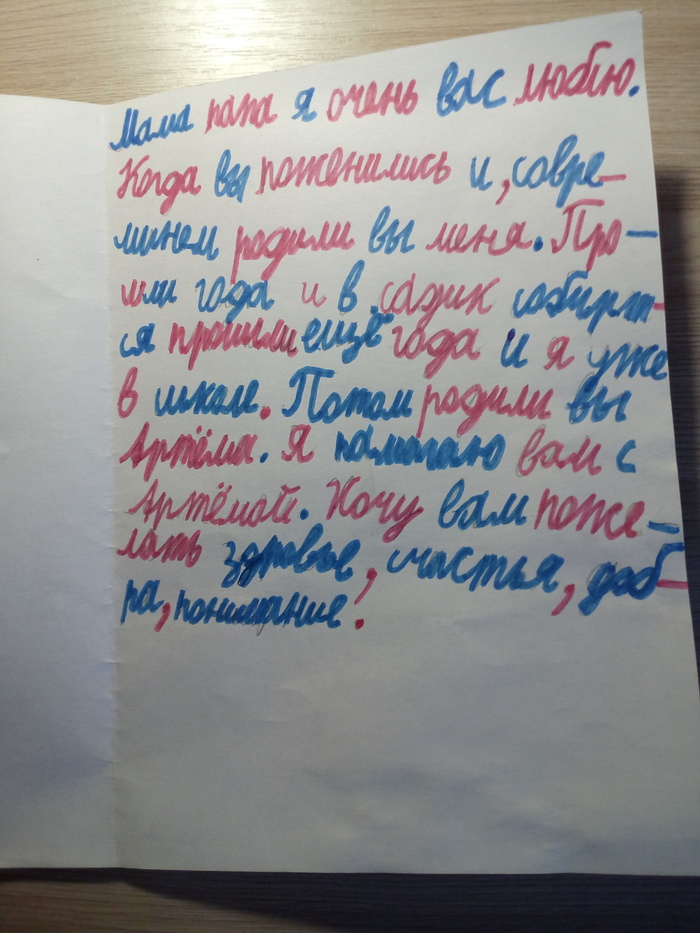 Мама папа я очень вас люблю.
Когда вы поженились и, совре-
минем родили вы меня. Про-
шли года и в садик собират-
ся прошли ещё года и я уже
в школе. Потом родили вы
Артёма. Я памагаю вам с
Артёмой. Хочу вам поже-
лать здровье, счастья, доб-
ра, понимание.